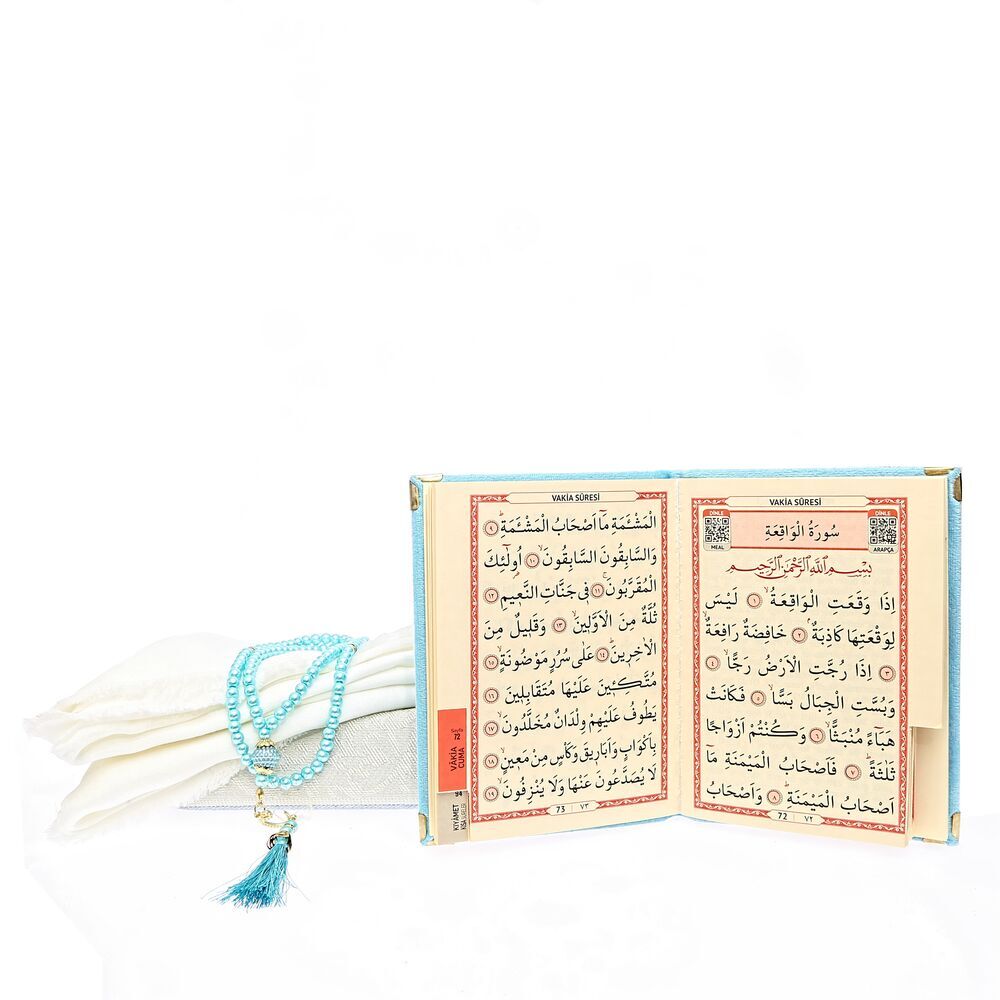 VAKİA SÛRESİ
DİNLE
MEAL
سُورَةُ الْوَاقِعَةِ
DİNLE
ARAPÇA
بِسْمِ اللّٰهِ الرَّحْمٰنِ الرَّحِيمِ
اِذَا وَقَعَتِ الْوَاقِعَةُۙ ﴿١﴾ لَيْسَ
لِوَقْعَتِهَا كَاذِبَةٌۢ ﴿٢﴾ خَافِضَةٌ رَافِعَةٌۙ
﴿٣﴾ اِذَا رُجَّتِ الْاَرْضُ رَجًّاۙ ﴿٤﴾
وَبُسَّتِ الْجِبَالُ بَسًّاۙ ﴿٥﴾ فَكَانَتْ
هَبَٓاءً مُنْبَثًّاۙ ﴿٦﴾ وَكُنْتُمْ اَزْوَاجًا
ثَلٰثَةًۜ ﴿٧﴾ فَاَصْحَابُ الْمَيْمَنَةِ مَٓا
اَصْحَابُ الْمَيْمَنَةِۜ ﴿٨﴾ وَاَصْحَابُ
72 ٧٢
VAKİA SÛRESİ
الْمَشْـَٔمَةِ مَٓا اَصْحَابُ الْمَشْـَٔمَةِۜ ﴿٩﴾
وَالسَّابِقُونَ السَّابِقُونَۙ ﴿١٠﴾ اُولٰٓئِكَ
الْمُقَرَّبُونَۚ ﴿١١﴾ فِي جَنَّاتِ النَّعِيمِ ﴿١٢﴾
ثُلَّةٌ مِنَ الْاَوَّلِينَۙ ﴿١٣﴾ وَقَلِيلٌ مِنَ
الْاٰخِرِينَۜ ﴿١٤﴾ عَلٰى سُرُرٍ مَوْضُونَةٍۙ ﴿١٥﴾
مُتَّكِـِٔينَ عَلَيْهَا مُتَقَابِلِينَ ﴿١٦﴾
يَطُوفُ عَلَيْهِمْ وِلْدَانٌ مُخَلَّدُونَۙ ﴿١٧﴾
بِاَكْوَابٍ وَاَبَارِيقَ وَكَأْسٍ مِنْ مَعِينٍۙ ﴿١٨﴾
لَا يُصَدَّعُونَ عَنْهَا وَلَا يُنْزِفُونَۙ ﴿١٩﴾
73 ٧٣
Sayfa
72
VAKİA
CUMA
94
KIYÂMET
KISA SURELER